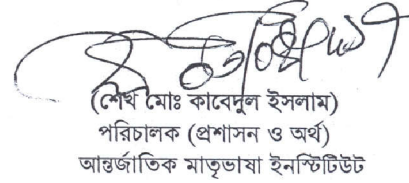 (শেখ মোঃ কাবেদুল ইসলাম)
পরিচালক (প্রশাসন ও অর্থ)
আন্তর্জাতিক মাতৃভাষা ইনস্টিটিউট